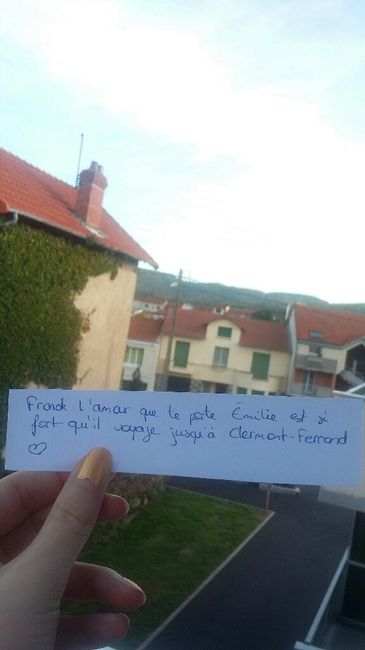 Franck l'amour que te porte Émilie est si
fort qu'il voyage jusqu'à Clermont-Ferrand
♡